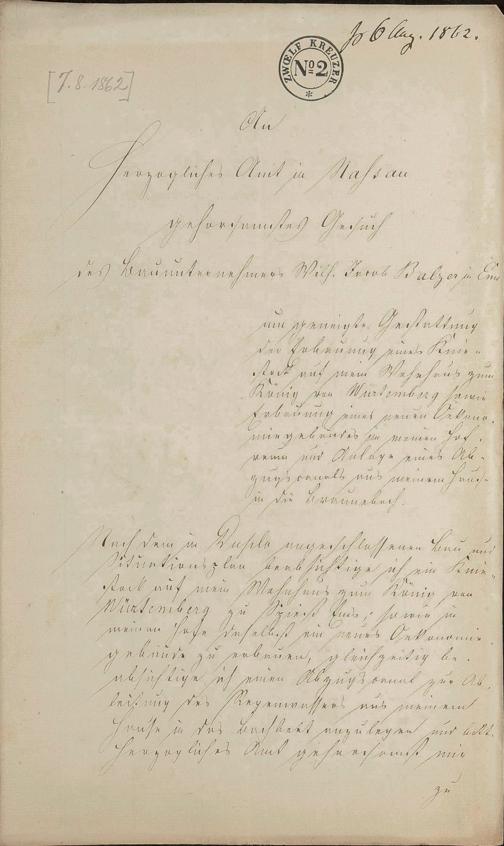 pr 6 Aug. 1862.
ZWŒLF KREUZER
No 2
[7.8.1862]
An
Herzogliches Amt in Nassau
gehorsamstes Gesuch
des Bauunternehmers Wilh. Jacob Balzer in Ems
um geneigte Gestattung
der Erbauung eines Knie-
stock auf mein Wohnhaus zum
König von Würtemberg sowie
Erbauung eines neuen Oekono-
miegebäudes in meinem Hof-
und Anlage eines Ab-
zugscanals aus meinem Hause
in die Braunebach.
Nach dem in Duplo angeschlossenen Bau und
Situationsplan beabsichtige ich ein Knie-
stock auf mein Wohnhaus zum König von
Würtemberg zu Ems; sowie in
meinem Hofe daselbst ein neues Oekonomie-
gebäude zu erbauen, gleichzeitig be-
absichtige ich einen Abzugscanal zur Ab-
leitung des Regenwassers aus meinem
Hause in das Bachbett anzulegen und bitte
Herzogliches Amt gehorsamst mir
zu